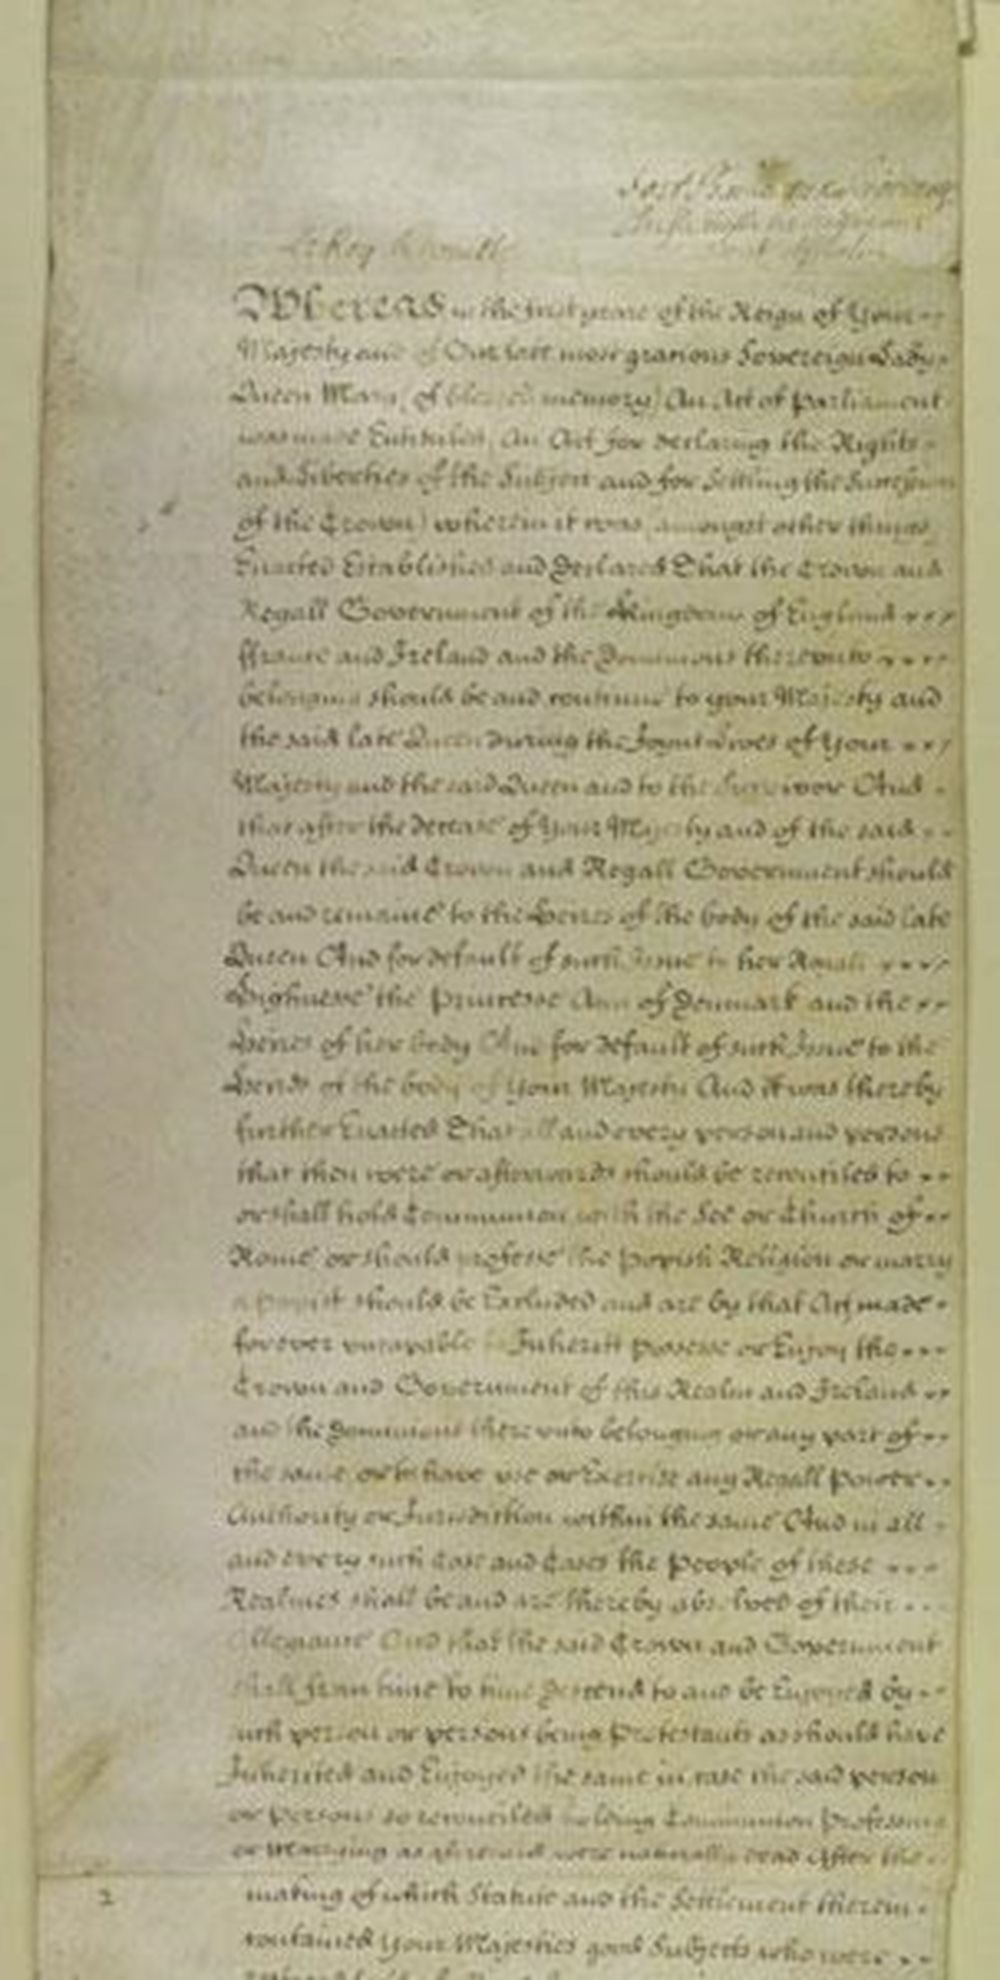 Le Roy le veult
Whereas in the first yeare of the Reign of Your
Majesty and of Our late most gracious Sovereign Lady
Queen Mary (of blessed memory) An Act of Parliament
was made Entituled (An Act for declaring the Rights
and Liberties of the Subject and for Setling the Succession
of the Crown) wherein it was amongst other things
Enacted Established and Declared That the Crown and
Regall Government of the Kingdoms of England
ffrance and Ireland and the Dominions thereunto
belonging should be and continue to your Majesty and
the said late Queen during the Joynt Lives of Your
Majesty and the said Queen and to the Survivor And
that after the decease of Your Majesty and of the said
Queen the said Crown and Regall Government should
be and remaine to the Heires of the body of the said late
Queen And for default of such Issue to her Royall
Highnesse the Princesse Ann of Denmark and the
Heires of her body And for default of such Issue to the
Heires of the body of Your Majesty And it was thereby
further Enacted That all and every person and persons
that then were or afterwards should be reconciled to
or shall hold Communion with the See or Church of
Rome or should professe the Popish Religion or marry
a papist should be Excluded and are by that Act made
forever uncapable to Inheritt possesse or Enjoy the
Crown and Government of this Realm and Ireland
and the Dominions thereunto belonging or any part of
the same or to have use or Exercise any Regall Power
Authority or Jurisdiction within the same And in all
and every such Case and Cases the People of these
Realmes shall be and are thereby absolved of their
Allegiance And that the said Crown and Government
shall from time to time Descend to and be Enjoyed by
such person or persons being Protestants as should have
Inherited and Enjoyed the same in case the said person
or Persons so reconciled holding Communion Professing
or Marrying as aforesaid were naturally dead After the
2 making of which Statute and the Settlement therein
contained Your Majesties good Subjects who were